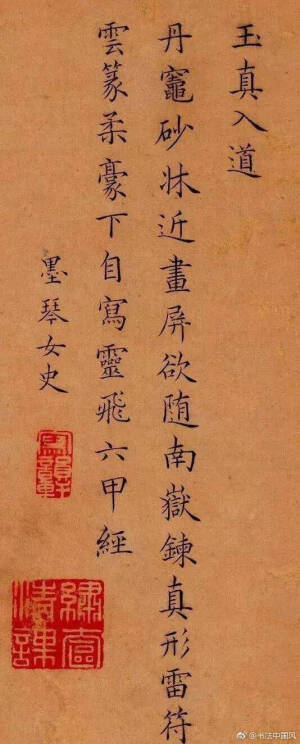 玉真入道
丹竈砂牀近畫屏欲随南嶽鍊真形雷符
雲篆柔豪下自寫靈飛六甲經
墨琴女史
寫韻軒
繡窗清課
@书法中国风